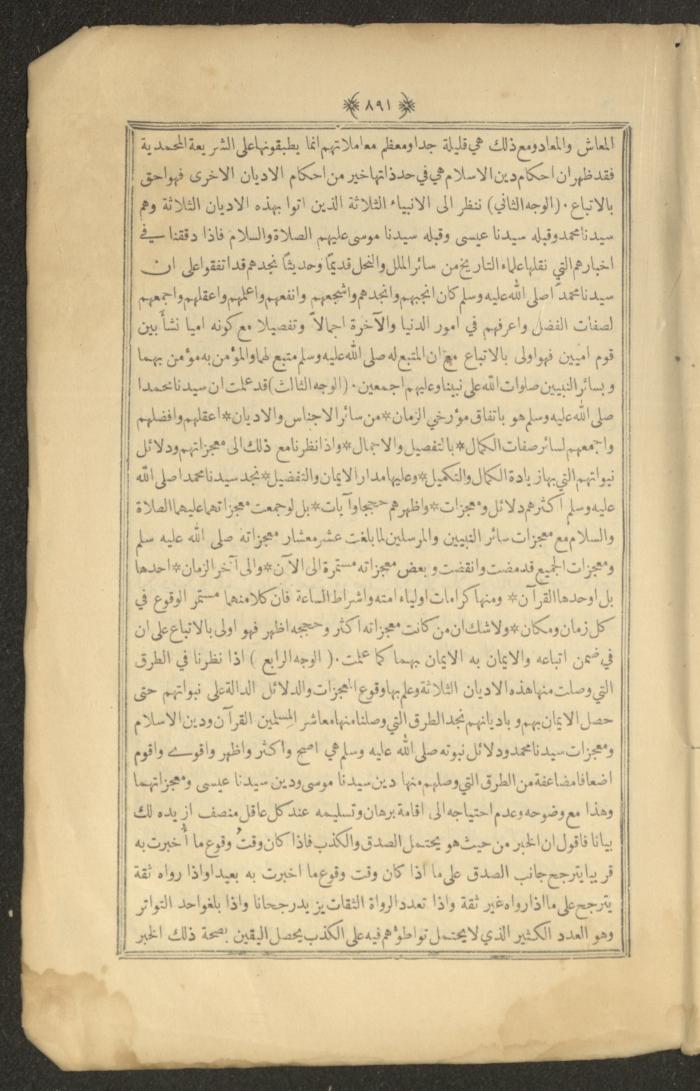 ٨٩١
المعاش والمعاد ومع ذلك هي قليلة جدا ومعظم معاملاتهم انما يطبقونها على الشريعة المحمدية
فقد ظهر ان احكام دين الاسلام هي في حد ذاتها خير من احكام الاديان الاخرى فهو احق
بالاتباع . (الوجه الثاني) ننظر الى الانبياء الثلاثة الذين اتوا بهذه الاديان الثلاثة وهم
سيدنا محمد وقبله سيدنا عيسى وقبله سيدنا موسى عليهم الصلاة والسلام فاذا دققنا في
اخبارهم التي نقلها علماء التاريخ من سائر الملل والنحل قديمًا وحديثًا نجدهم قد اتفقوا على ان
سيدنا محمدًا صلى الله عليه وسلم كان انجبهم وانجدهم واشجعهم وانفعهم واعلمهم واعقلهم واجمعهم
لصفات الفضل واعرفهم في امور الدنيا والآخرة اجمالاً وتفصيلا مع كونه اميا نشأ بين
قوم اميين فهو اولى بالاتباع مع ان المتبع له صلى الله عليه وسلم متبع لهما والمؤمن به مؤمن بهما
وبسائر النبيين صلوات الله على نبينا وعليهم اجمعين . (الوجه الثالث) قد علمت ان سيدنا محمدا
صلى الله عليه وسلم هو باتفاق مؤرخي الزمان * من سائر الاجناس والاديان * اعقلهم وافضلهم
واجمعهم لسائر صفات الكمال * بالتفصيل والاجمال * واذا نظرنا مع ذلك الى معجزاتهم ودلائل
نبواتهم التي بها زيادة الكمال والتكميل * وعليها مدار الايمان والتفضيل * نجد سيدنا محمدا صلى الله
عليه وسلم أكثرهم دلائل ومعجزات * واظهرهم حججا وآيات * بل لو جمعت معجزاتهما عليهما الصلاة
والسلام مع معجزات سائر النبيين والمرسلين لما بلغت عشر معشار معجزاته صلى الله عليه سلم
ومعجزات الجميع قد مضت وانقضت وبعض معجزاته مستمرة الى الآن * والى آخر الزمان * احدها
بل اوحدها القرآن * ومنها كرامات اولياء امته واشراط الساعة فان كلا منهما مستمر الوقوع في
كل زمان ومكان * ولا شك ان من كانت معجزاته اكثر وحججه اظهر فهو اولى بالاتباع على ان
في ضمن اتباعه والايمان به الايمان بهما كما علمت . ( الوجه الرابع ) اذا نظرنا في الطرق
التي وصلت منها هذه الاديان الثلاثة وعلم بها وقوع المعجزات والدلائل الدالة على نبواتهم حتى
حصل الايمان بهم وباديانهم نجد الطرق التي وصلنا منها معاشر المسلمين القرآن ودين الاسلام
ومعجزات سيدنا محمد ودلائل نبوته صلى الله عليه وسلم هي اصح واكثر واظهر واقوى واقوم
اضعافا مضاعفة من الطرق التي وصلهم منها دين سيدنا موسى ودين سيدنا عيسى ومعجزاتهما
وهذا مع وضوحه وعدم احتياجه الى اقامة برهان وتسليمه عند كل عاقل منصف ازيده لك
بيانا فاقول ان الخبر من حيث هو يحتمل الصدق والكذب فاذا كان وقتُ وقوع ما أُخبرت به
قريبا يترجح جانب الصدق على ما اذا كان وقت وقوع ما اخبرت به بعيدا واذا رواه ثقة
يترجح على ما اذا رواه غير ثقة واذا تعدد الرواة الثقات يزيد رجحانا واذا بلغوا حد التواتر
وهو العدد الكثير الذي لا يحتمل تواطؤهم فيه على الكذب يحصل اليقين بصحة ذلك الخبر